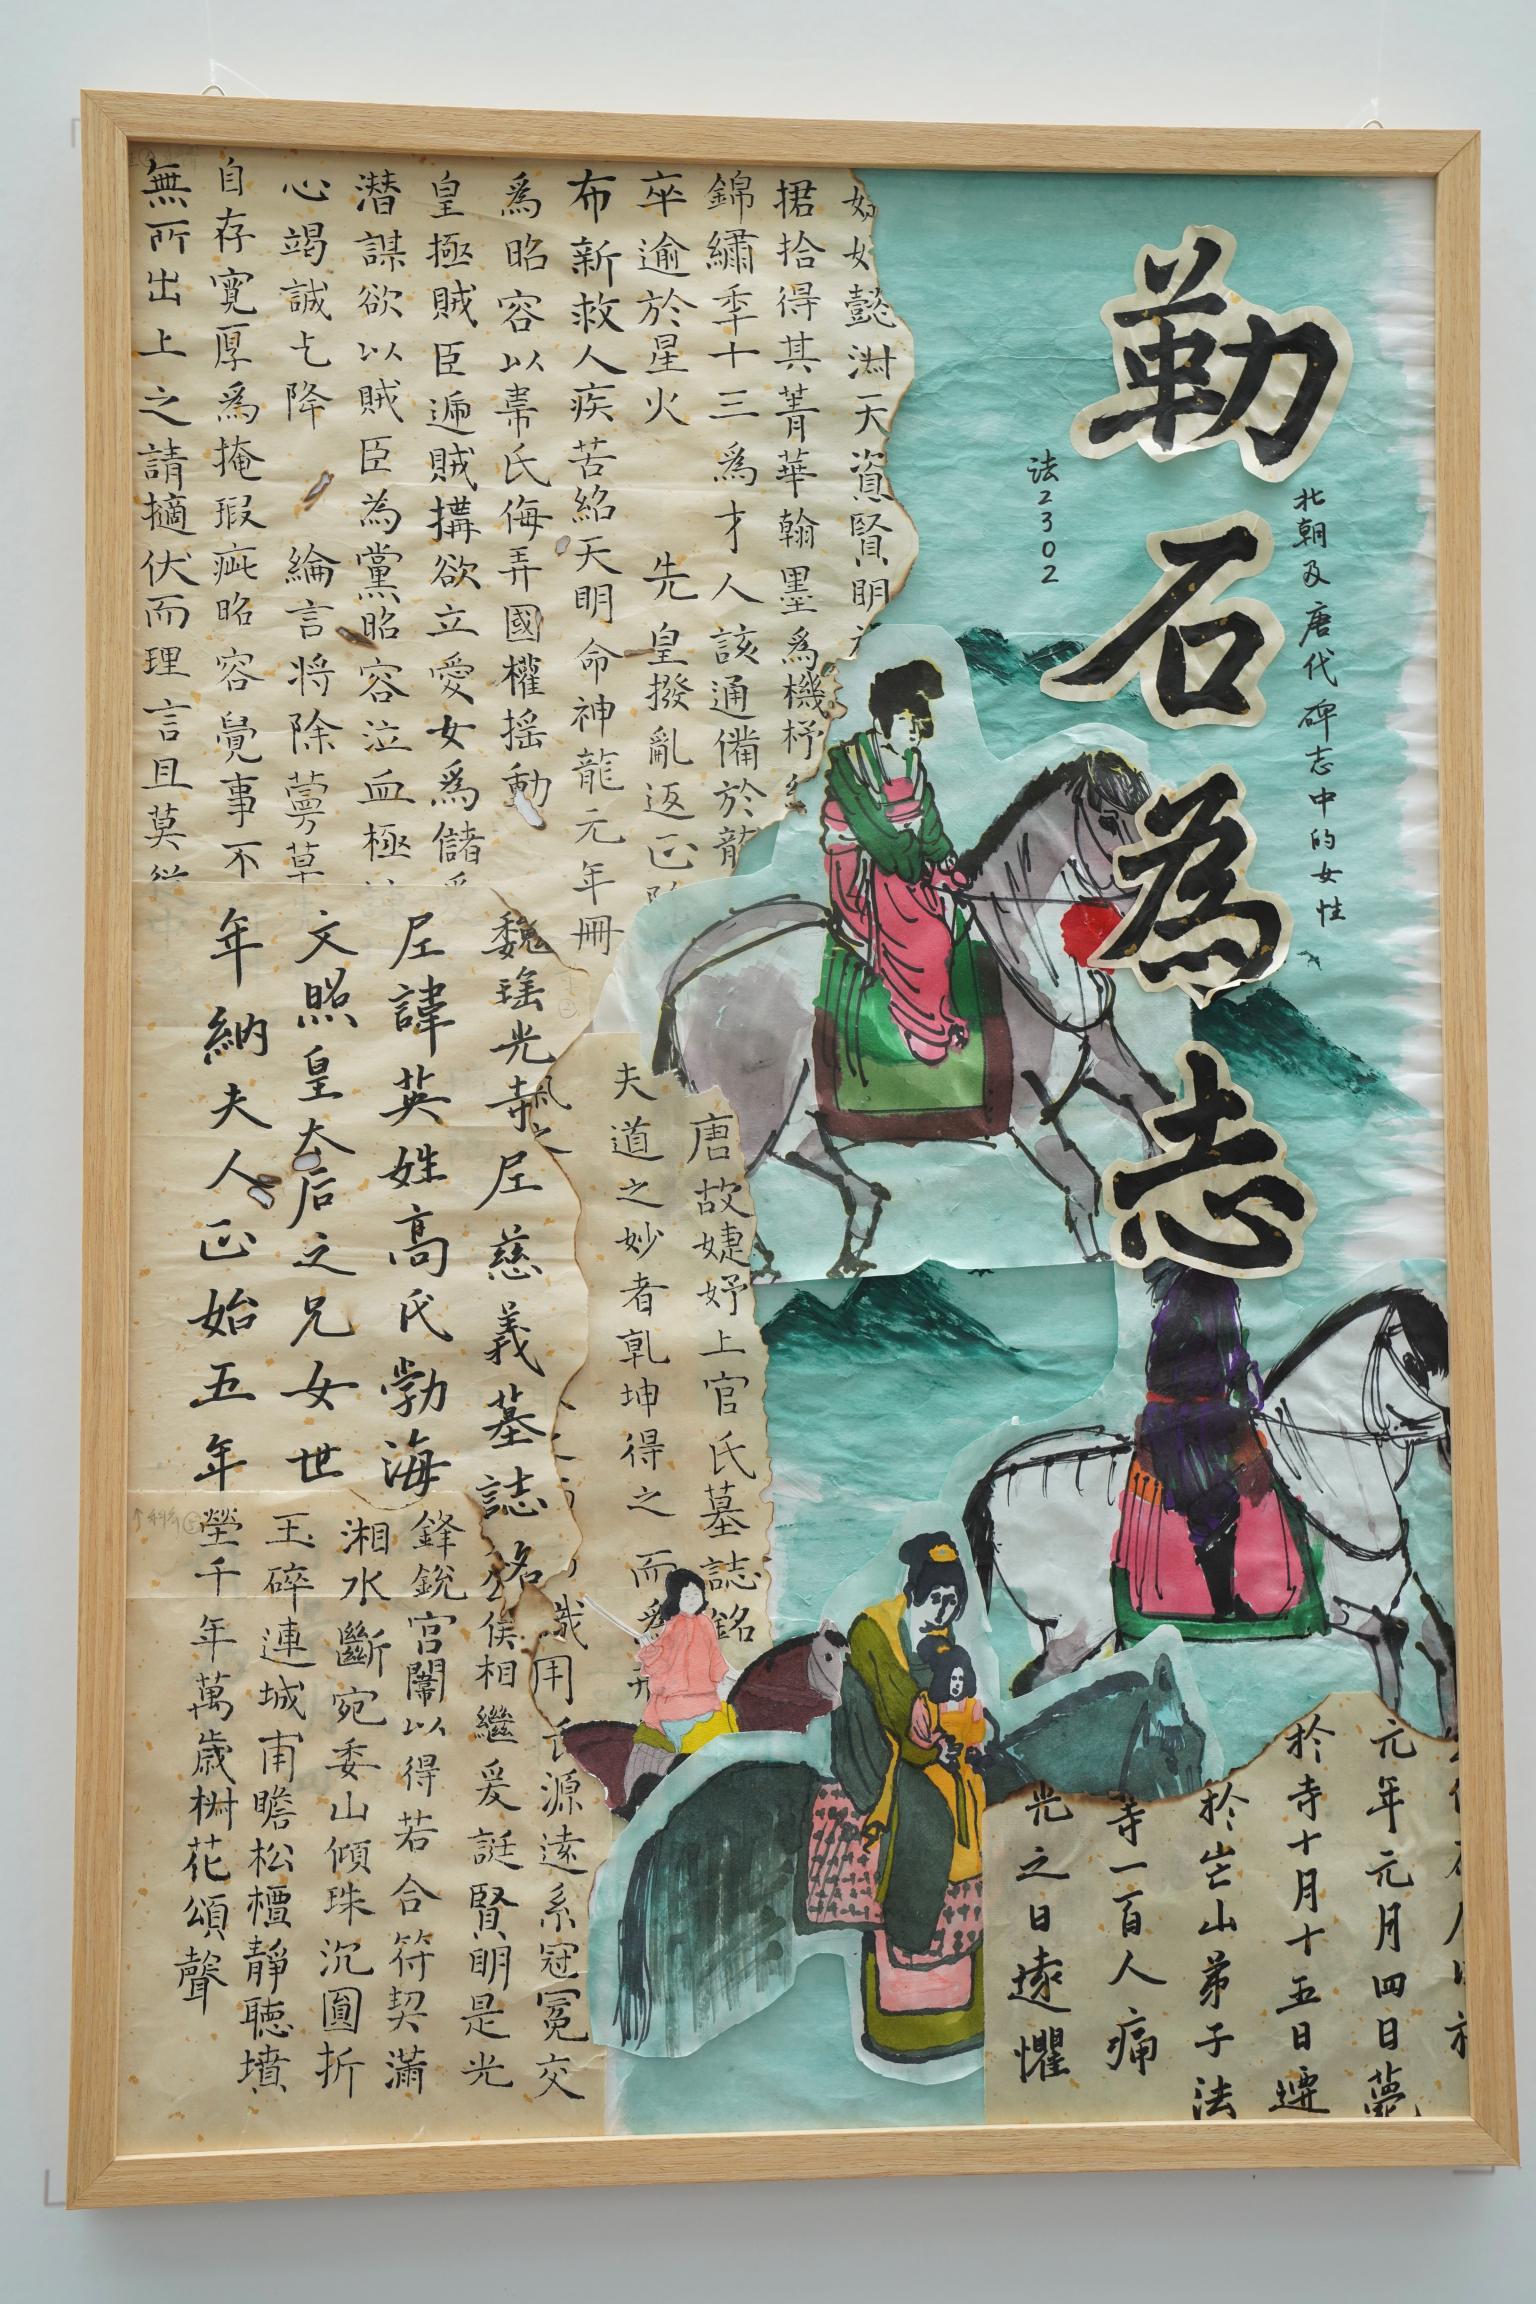 勒石為志
北朝及唐代碑志中的女性
法2302
懿淑天資賢明
捃拾得其菁華翰墨為機杼
錦繡年十三為才人該通備於龍
卒逾於星火 先皇撥亂返正
布新救人疾苦紹天明命神龍元年冊
為昭容以韋氏侮弄國權搖動
皇極賊臣遞賊搆欲立愛女為儲
潛謀欲以賊臣為黨昭容泣血極
心竭誠乞降 綸言將除蔓草
自存寬厚為掩瑕疵昭容覺事不
無所出上之請擿伏而理言且莫從
唐故婕妤上官氏墓誌銘
夫道之妙者乾坤得之而為
魏瑤光寺之尼慈義墓誌銘
尼諱英姓高氏勃海
文照皇太后之兄女世
年納夫人正始五年
氏源遠系冠冕交
侯相繼爰誕賢明是光
鋒銳宮闈以得若合符契瀟
湘水斷宛委山傾珠沉圓折
玉碎連城甫瞻松檟靜聽墳
塋千年萬歲椒花頌聲
元年元月四日薨
於寺十月十五日遷
於芒山弟子法
等一百人痛
光之日遠懼